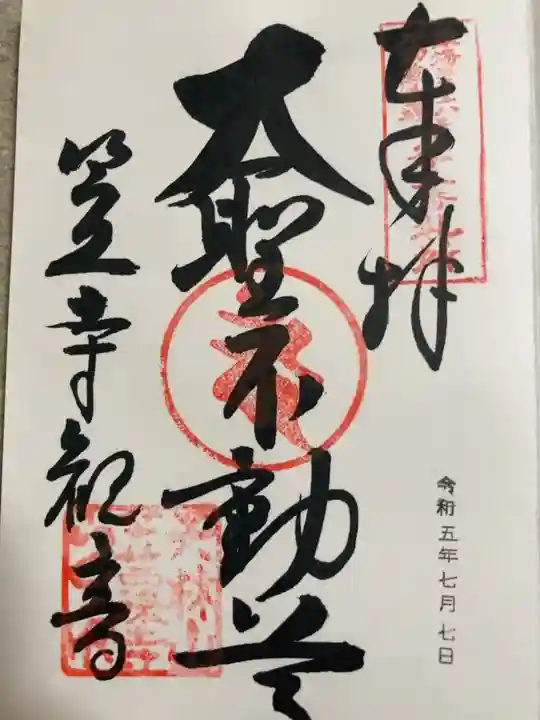 奉拝
令和五年七月七日
大聖不動尊
笠寺観音